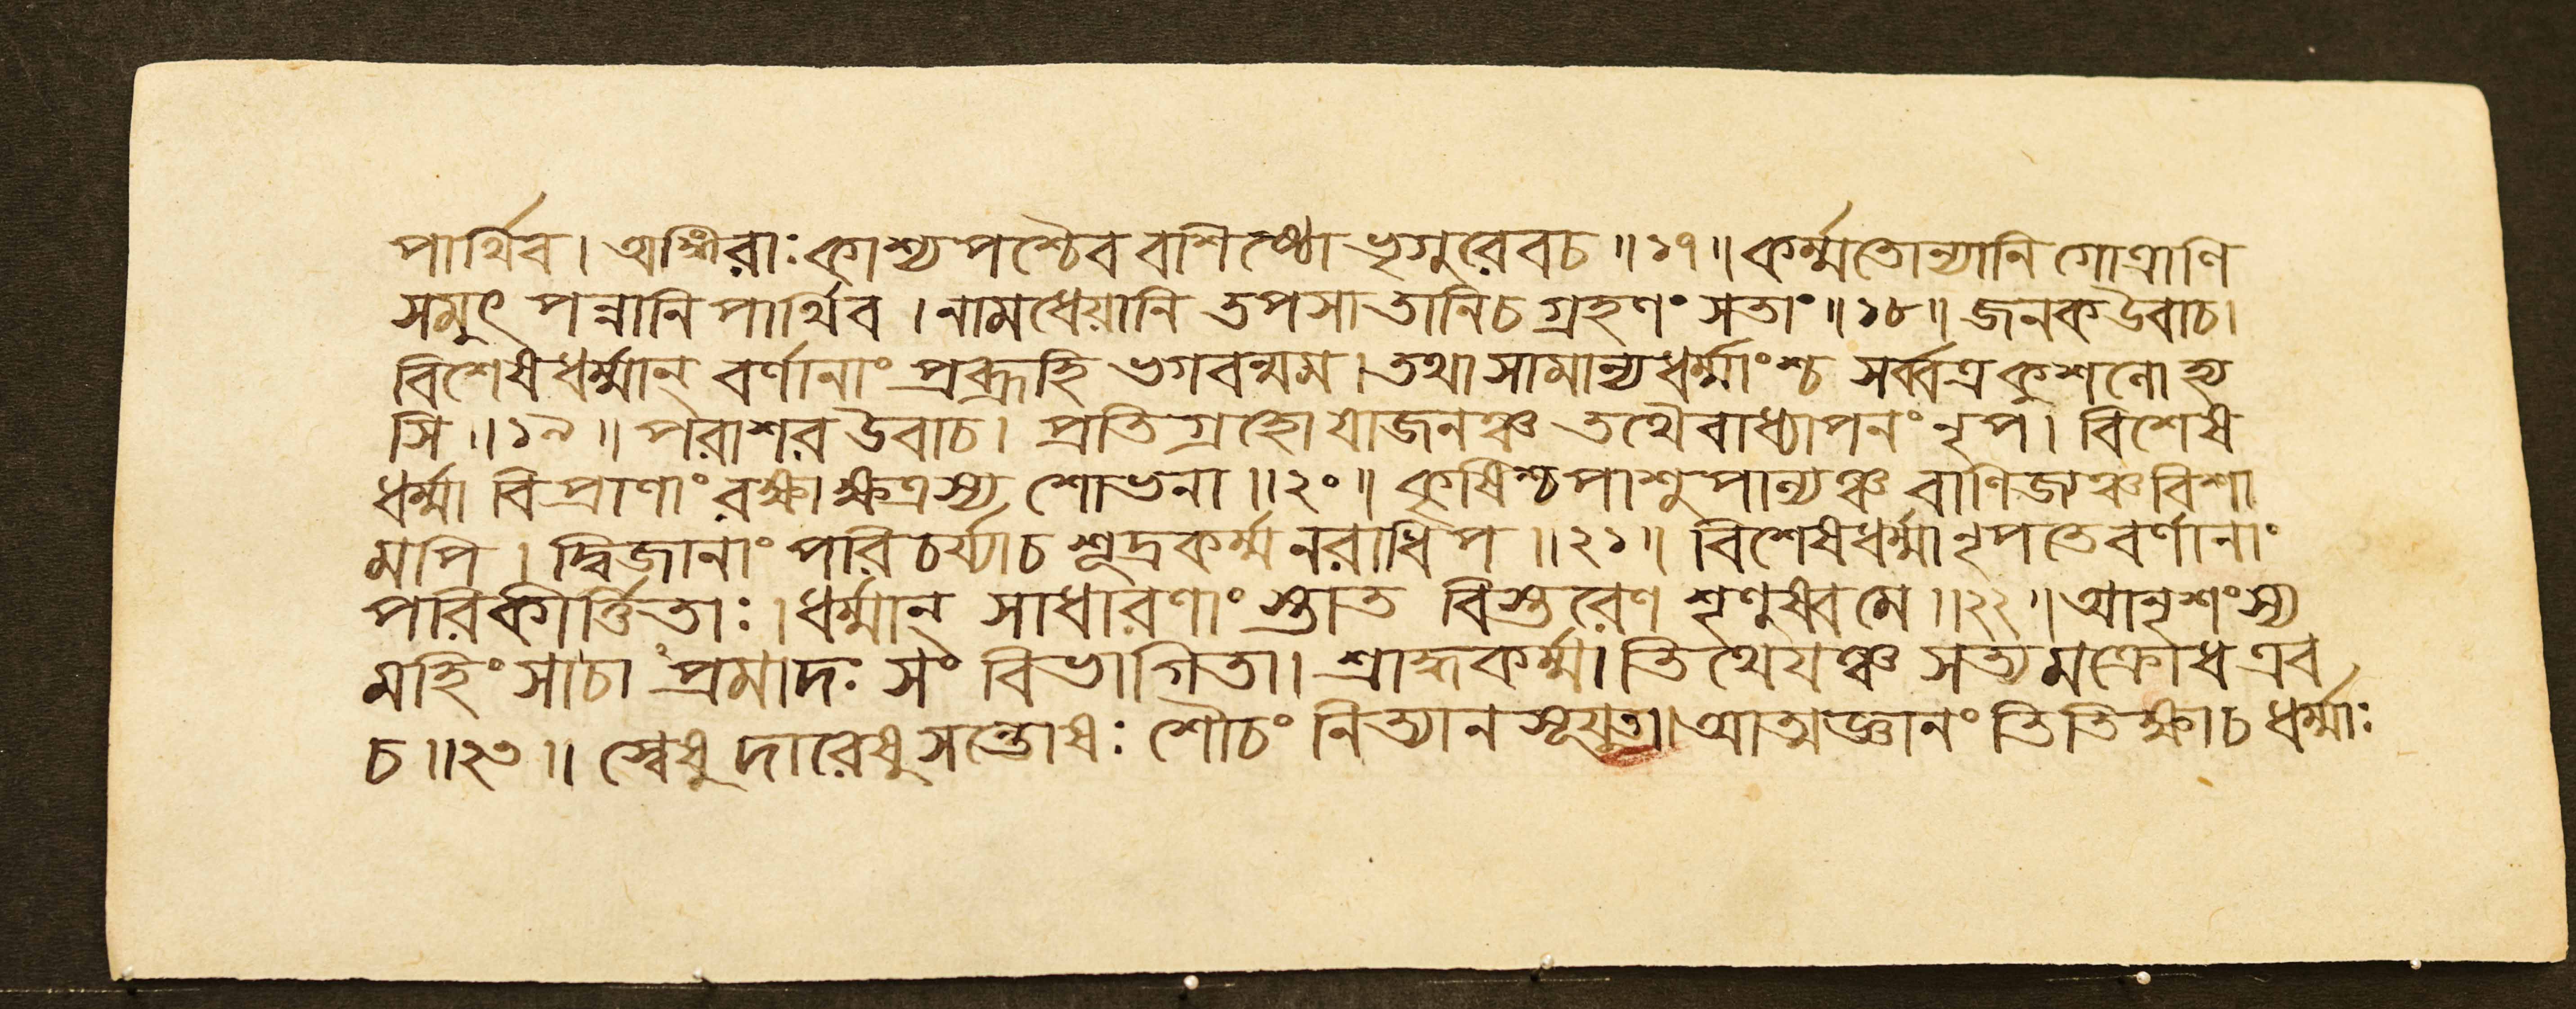 পার্থিব। অঙ্গিরাঃ কাশ্যপশ্চৈব বশিষ্ঠো ভৃগুরেবচ॥১৭॥ কর্ম্মতোন্যানি গোত্রাণি
সমুৎ পন্নানি পার্থিব। নামধেয়ানি তপসা তানিচ গ্রহণং সতাং॥১৮॥ জনক উবাচ।
বিশেষধর্ম্মান্ বর্ণানাং প্রব্রূহি ভগবন্মম। তথা সামান্যধর্ম্মাংশ্চ সর্ব্বত্রকুশলোহ্য
সি॥১৯॥ পরাশর উবাচ। প্রতিগ্রহো যাজনঞ্চ তথৈবাধ্যাপনং নৃপ। বিশেষ
ধর্ম্মা বিপ্রাণাং রক্ষা ক্ষত্রস্য শোভনা॥২০॥ কৃষিশ্চ পাশুপাল্যঞ্চ বাণিজ্যঞ্চ বিশা
মপি। দ্বিজানাং পরিচর্য্যাচ শূদ্রকর্ম্ম নরাধিপ॥২১॥ বিশেষধর্ম্মা নৃপতে বর্ণানাং
পরিকীর্ত্তিতাঃ। ধর্ম্মান্ সাধারণাং স্তাত বিস্তরেণ শৃণুষ্বমে॥২২॥ আনৃশংস্য
মহিংসাচা প্রমাদঃ সং বিভাগিতা। শ্রাদ্ধকর্ম্মা তিথেয়ঞ্চ সত্যমক্রোধ এব
চ॥২৩॥ স্বেষু দারেষু সন্তোষঃ শৌচং নিত্যানসূয়তা। আত্মজ্ঞানং তিতিক্ষাচ ধর্ম্মাঃ